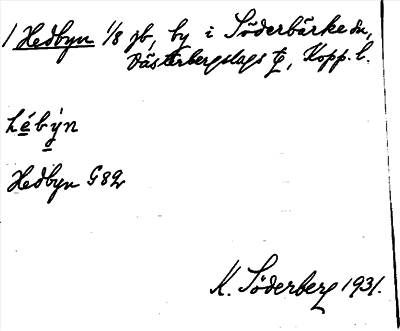 1 Hedbyn 1/8 jb, by i Söderbärke sn,
Västerbergslags tg, Kopp. l.
hébýn
Hedbyn G82
K. Söderberg 1931.